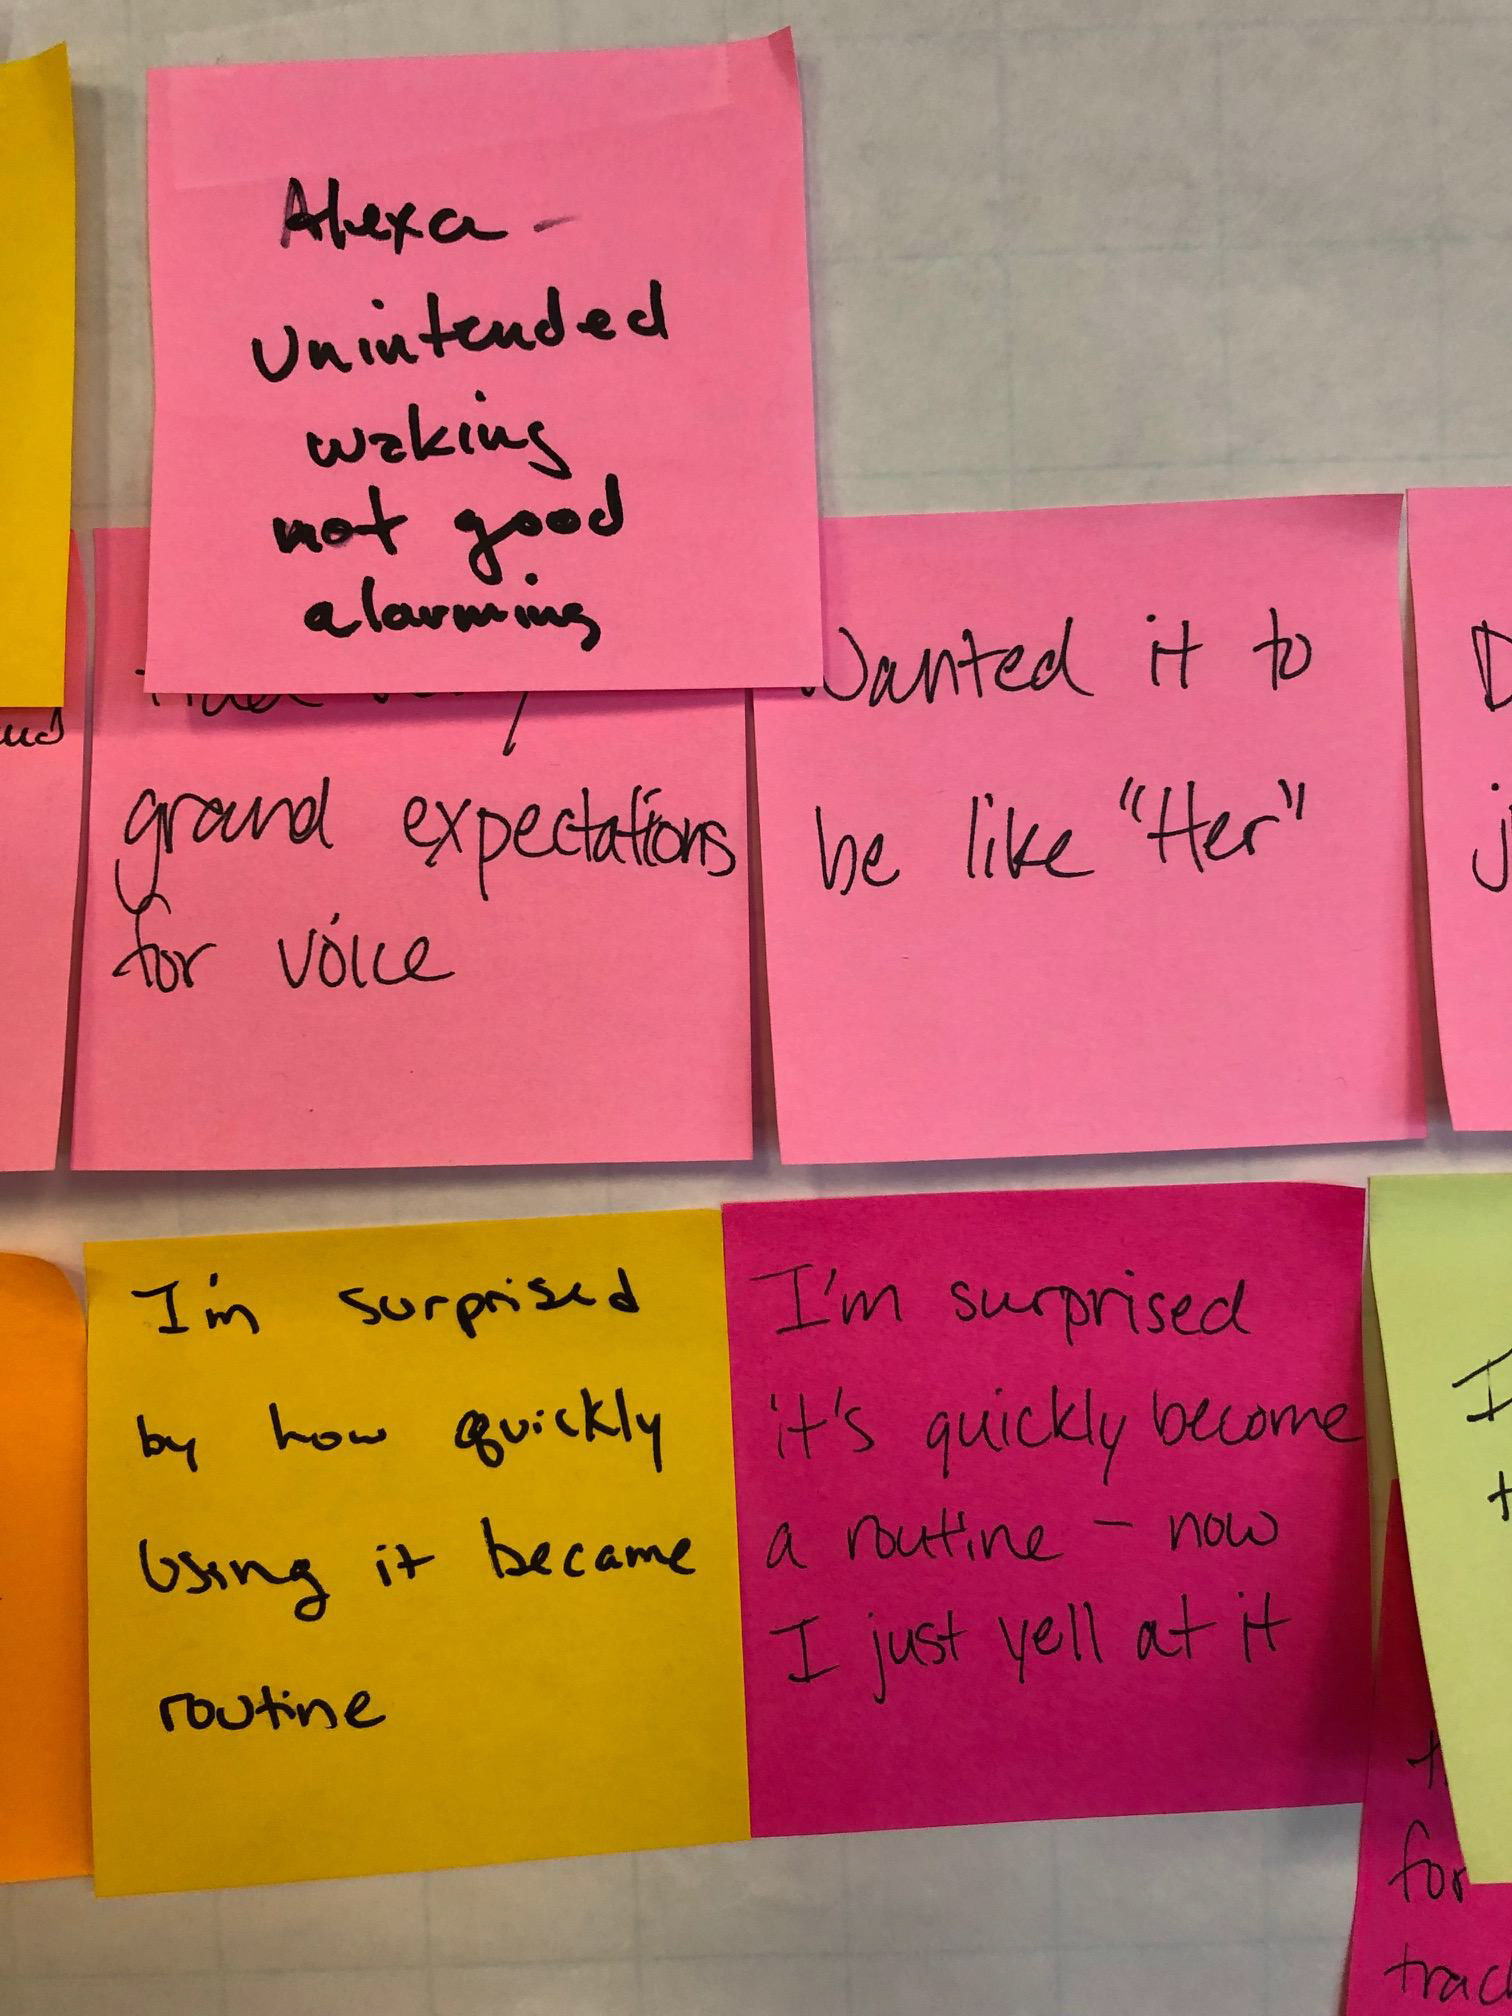 Alexa -
Unintended
waking
not good
alarming
grand expectations
for voice
Wanted it to
be like "Her"
I'm surprised
by how quickly
Using it became
routine
I'm surprised
it's quickly become
a routine - now
I just yell at it
I
for